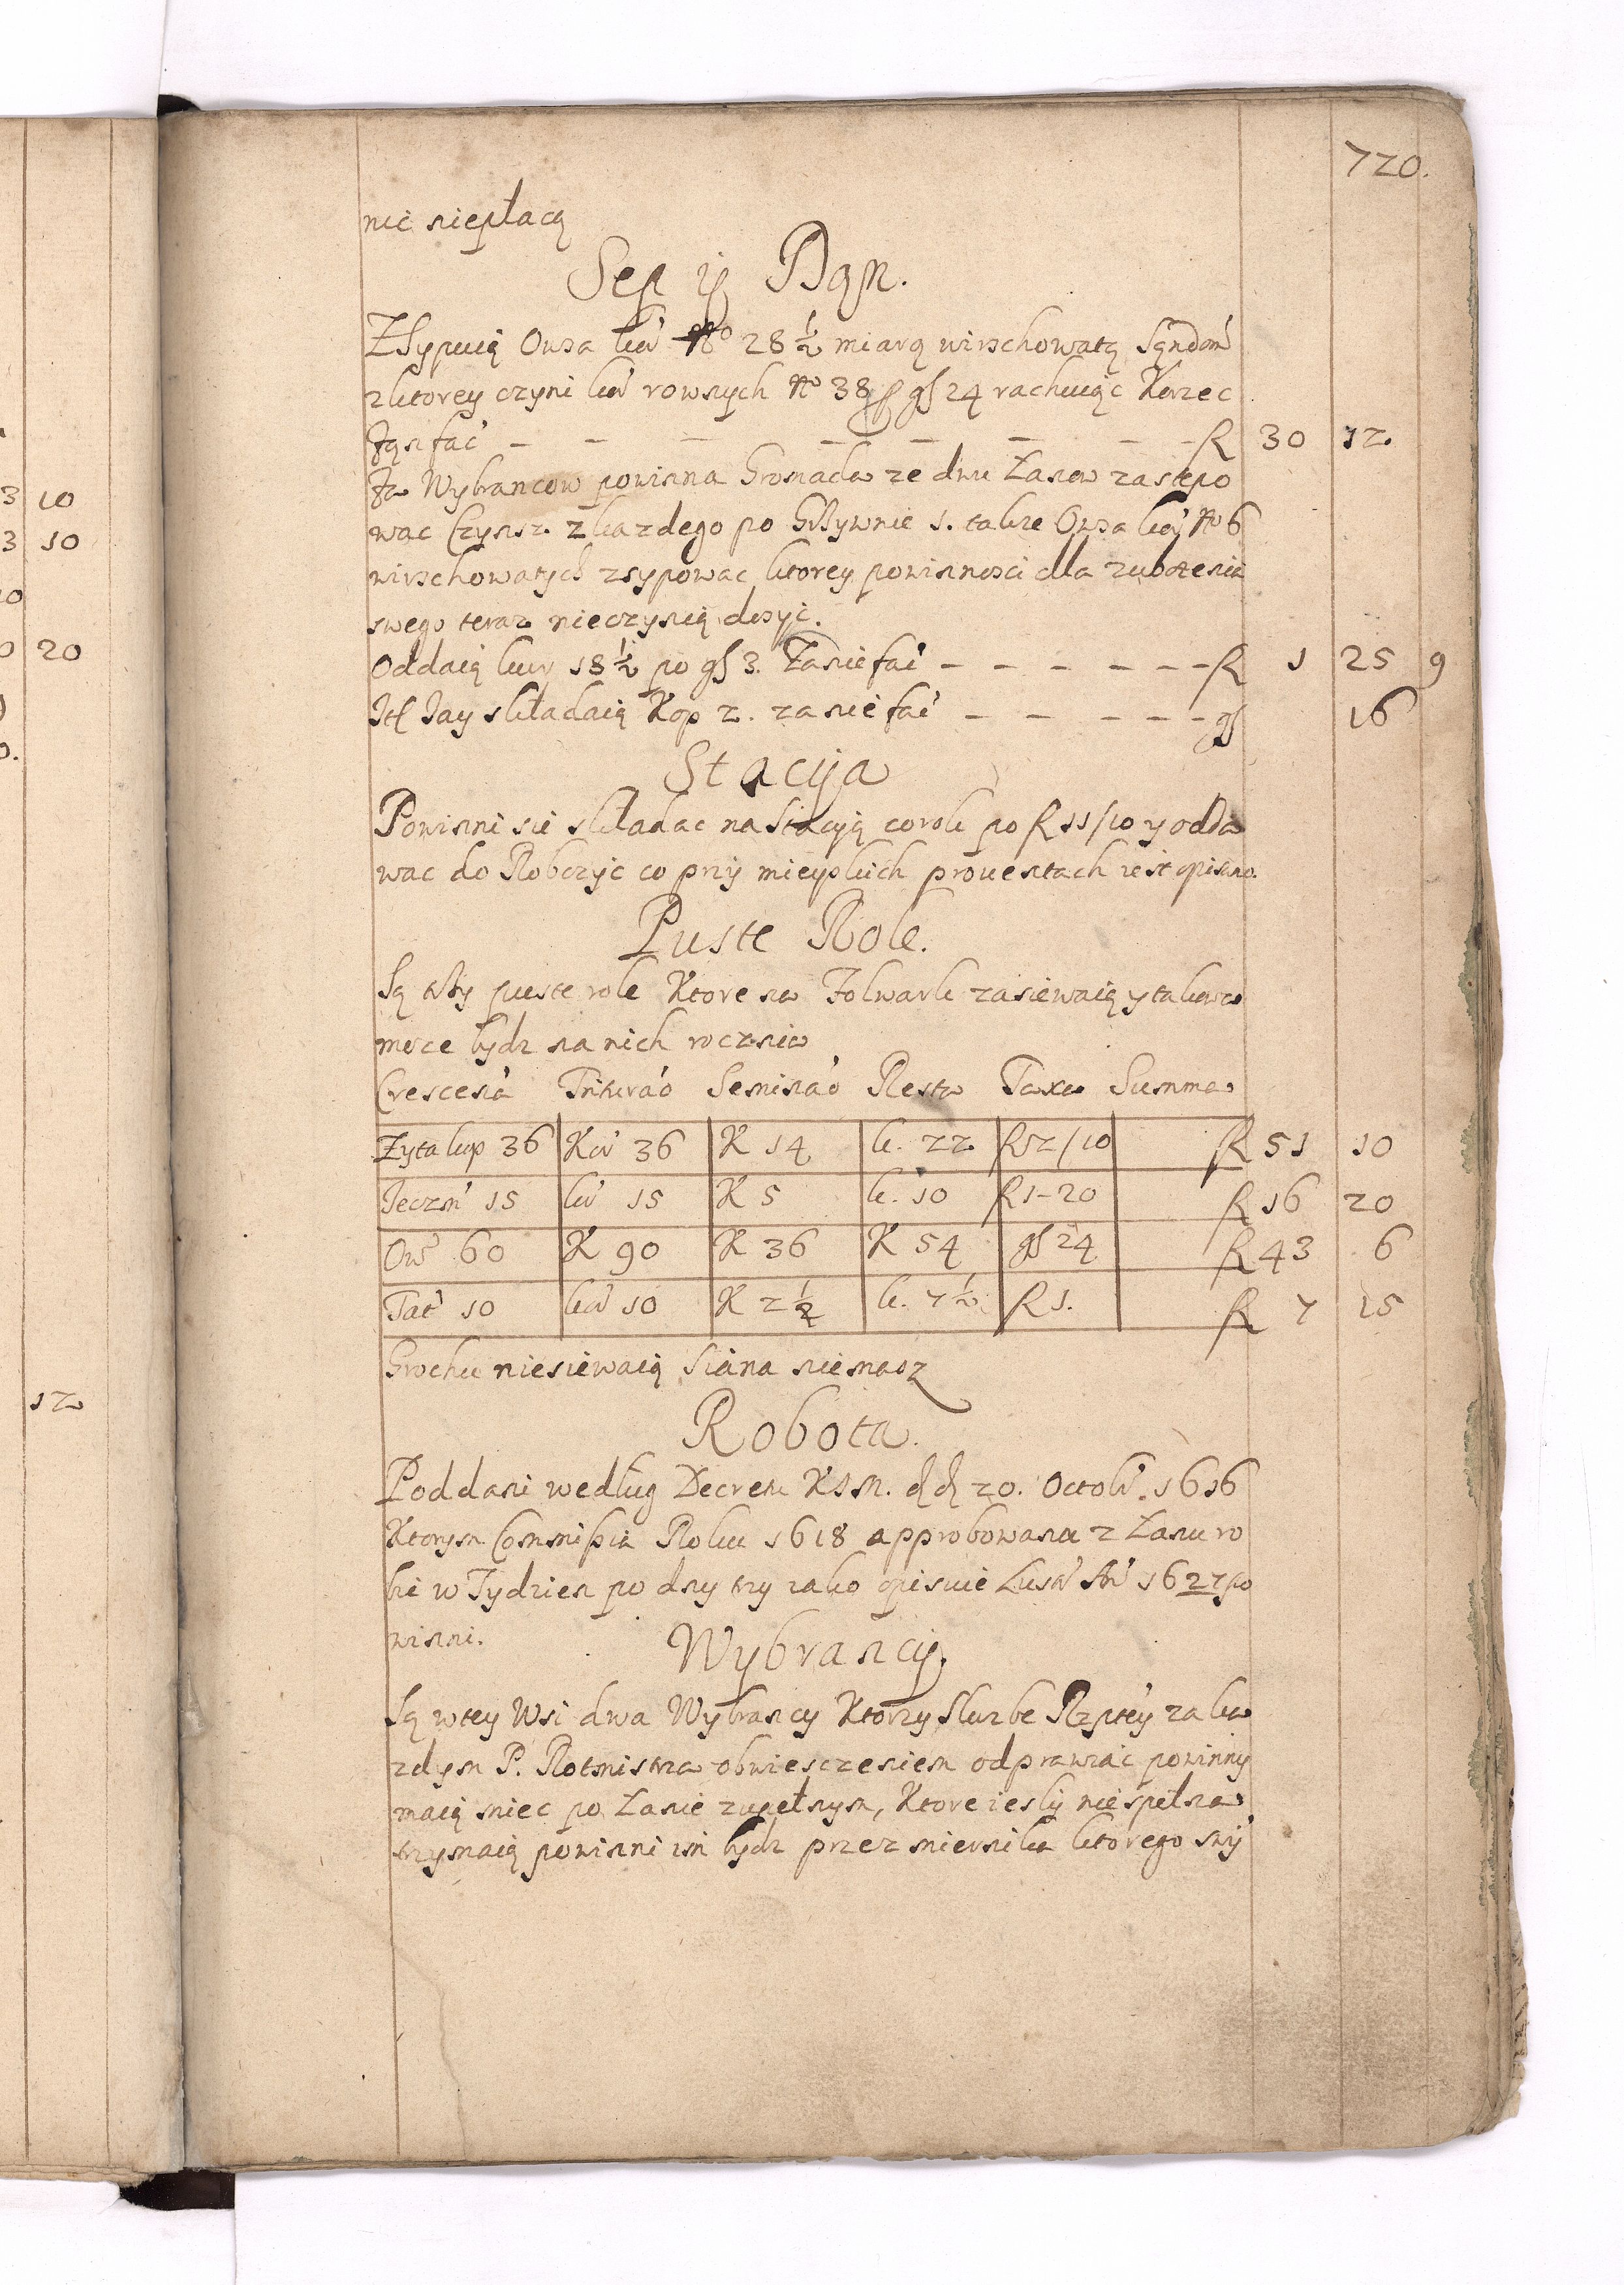 720.
nic niepłacą
Sep ij Dan.
Zsypuią Owsa kor No 28 ½ miarą wirzchowatą Sęndom
zktorey czyni kor rownych No 38 gr 24 rachuiąc Korzec
facit – – – – – – – fl 30 12.
Za Wybrancow powinna Gromada ze dwu Łanow zastępo
wac Czynsz. z kazdego po Grzywnie 1. takze Owsa kor No 6
wirzchowatych zsypowac, ktorey powinnosci dla zubożenia
swego teraz nieczynią dosyć.
Oddaią kur 18 ½ po gr 3. Zanie fac – – – – – – fl 1 25 9
It Jay składaią Kop 2. zanie fac – – – – – gr 16
Stacija
Powinni się składac na Stacyią co rok po fl 11/10 y odda
wac do Robczyc co przy mieyskich prouentach iest opisano.
Puste Role.
Są tesz puste role Ktore na Folwark zasiewaią y taka
moze bydz na nich roczna
Crescesia Triturao Seminao Resta Taxa Summa
Zyta kop 36 Kor 36 K 14 k. 22 fl 2/10 fl 51 10
Jeczm 15 kor 15 K 5 k. 10 fl 1-20 fl 16 20
Ows 60 K 90 K 36 K 54 gr 24 fl 43 6
Tat 10 kor 10 K 2 ½ k. 7 ½ fl 1. fl 7 15
Grochu niesiewaią Siana niemasz
Robota.
Poddani według Decretu KJM. dd 20. Octobr. 1616
Ktorym Commissia Roku 1618 approbowana z Łanu ro
bić w Tydzien po dny trzy iako opisuie Lustr An 1627 po
winni.
Wybrancij.
Są wtey Wsi dwa Wybrancy Ktorzy Sluzbe Rzptey za ka
zdym P. Rotmistrza obwiesczeniem odprawiac powinny
maią miec po Łanie zupełnym, Ktore iesly niespełna
trzymaią powinni im bydz przez miernika ktorego swy